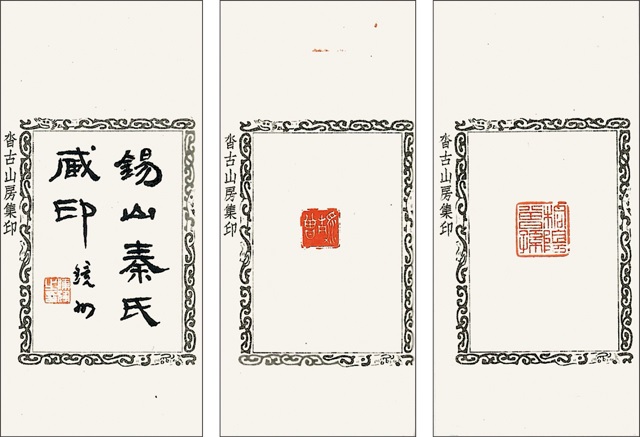 錫山秦氏
臧印
鏡州
沓古山房集印
沓古山房集印
沓古山房集印